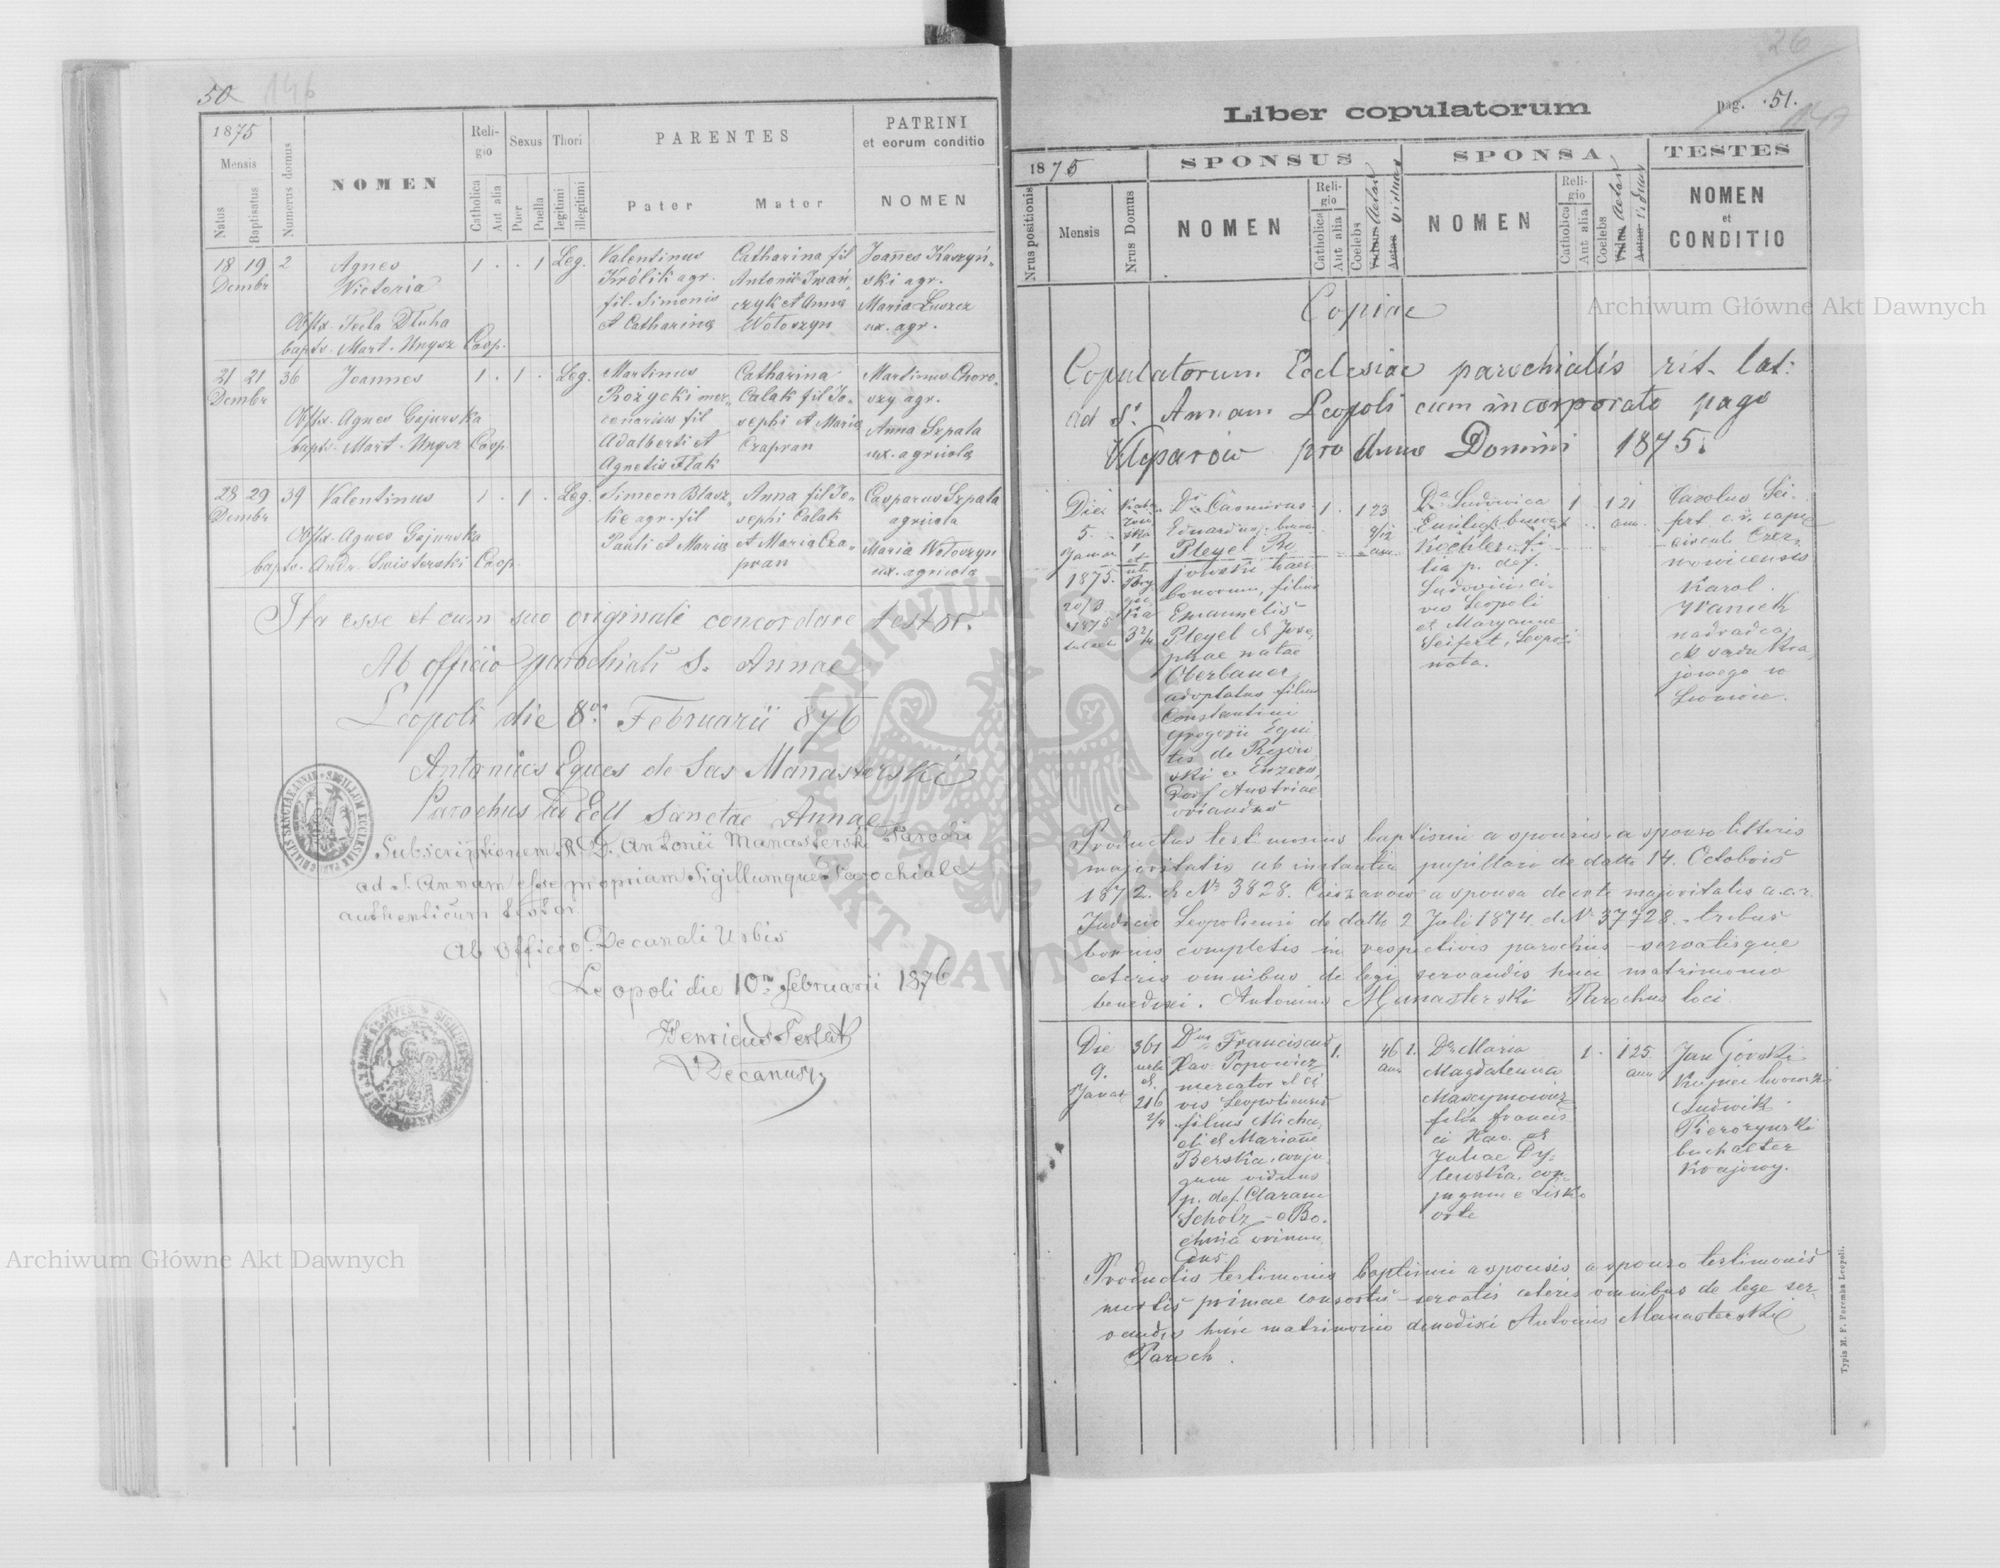 50 146
1875
Mensis
Natus
Baptisatus
Numerus domus
NOMEN
Religio
Catholica
Aut alia
Sexus
Puer
Puella
Thori
legitimi
illegitimi
PARENTES
Pater
Mater
PATRINI
et eorum conditio
NOMEN
18 19 2 Agnes 1 . . 1 Leg.
Dembr Victoria
Obstx. Tecla Dłuha
bapts. Mart. Unysz Coop.
Valentinus
Królik agr.
fil. Simonis
et Catharina
Catharina fil
Antonii Iwań-
czyk et Anna
Wołoszyn
Joanes Kaszyń-
ski agr.
Maria Luszcz
ux. agr.
21 21 36 Joannes 1 . 1 . Leg.
Dembr
Obstx. Agnes Gajurska
bapts. Mart. Unysz Coop
Martinus
Rożycki mer-
cenarius fil
Adalberti et
Agnetis Flak
Catharina
Calak fil Jo-
sephi et Maria
Czapran
Martinus Choro-
szy agr.
Anna Szpala
ux. agricola
28 29 39 Valentinus 1 . 1 . Leg.
Dembr
Obstx. Agnes Gajurska
bapts. Andr. Swisterski Coop.
Simeon Blasz-
kie agr. fil
Pauli et Maria
Anna fil Jo-
sephi Calak
et Maria Cza-
pran
Casparus Szpala
agricola
Maria Wołoszyn
ux. agricola
Ita esse et cum suo originali concordare testor.
Ab officio parochiali S. Annae
Leopoli die 8va Februarii 876
Antonius Eques de Sas Manasterski
Parochus ad Eccl Sanctae Annae
Subscriptionem R. D. Antonii Manasterski Parochi
ad St Annam esse propriam Sigillumque Parochiale
authenticum testor.
Ab Officio Decanali Urbis
Leopoli die 10ma Februarii 1876
Henricus
Decanus
26
Liber copulatorum
pag. 51.
147
1875
SPONSUS
SPONSA
TESTES
Nrus positionis
Mensis
Nrus Domus
NOMEN
Religio
Catholica
Aut alia
Coelebs
Aetas
Viduus
NOMEN
Religio
Catholica
Aut alia
Coelebs
Aetas
Vidua
NOMEN
et
CONDITIO
Copiae
Copulatorum Ecclesiae parochialis rit. lat:
ad St. Annam Leopoli cum incorporato pago
Kleparow pro Anno Domini 1875.
Die
5.
Januar
1875.
20/3
1875
1
et
3 2/4
Dr Casimirus
Eduardus
Pleyel Re-
jowski haer.
bonorum, filius
Emanuelis
Pleyel et Jose-
phae natae
Oberbauer,
adoptatus filius
Constantini
Gregorii Equi-
tis de Rejow
ski ex Enzers-
dorf Austriae
oriundus
1 . 1 23
9/12
ann.
Da Ludovica
Emilia
Kochler fi-
lia p. def.
Ludovici, ci-
vis Leopoli
et Maryanna
Seifert, Leopoli
nata.
1 . 1 21
ann.
Carolus Sei-
fert
circuli Czer-
nowicensis
Karol
Waniek
nadradca
ck sądu kra
jowego w
Lwowie.
Productus testimoniis baptismi a sponsis, a sponso litteris
majoritatis ab instantia pupillari de datto 14. Octobris
1872. et No 3828. Cieszanow a sponsa decreto majoritatis a c. r.
Judicio Leopoliensi de datto 2 Juli 1874. et No 37728. tribus
bannis completis in respectivis parochiis servatisque
ceteris omnibus de lege servandis huic matrimonio
benedixi. Antonius Manasterski Parochus loci
Die
9.
Januar
361
et
216
2/4
Dnus Franciscus
Xav. Popowicz
mercator et ci
vis Leopoliensis
filius Micha-
eli et Marianne
Berska, conju-
gum viduus
p. def. Claram
Scholz - e Bo-
chnia oriun-
dus
1. 46 1.
ann
Da Maria
Magdalenna
Maxymowicz
filia Francis-
ci Xav. et
Juliae Dy-
lewska, con-
jugum e Lisko
orta
1 . 1 25
ann
Jan Górski
Kupiec lwowski
Ludwik
Pierożyński
buchalter
Krajowy.
Productis testimoniis baptismi a sponsis a sponso testimonis
mortis primae consortis - servatis ceteris omnibus de lege ser-
vandis huic matrimonio benedixi Antonius Manasterski
Paroch.
Typis M. F. Poremba Leopoli.
Archiwum Główne Akt Dawnych
Archiwum Główne Akt Dawnych
ARCHIWUM GŁÓWNE AKT DAWNYCH